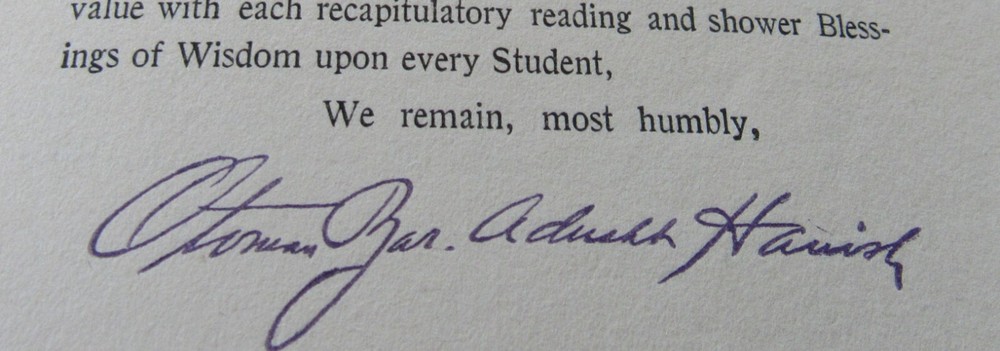 value with each recapitulatory reading and shower Bless-
ings of Wisdom upon every Student,
We remain, most humbly,
Otoman Zar. Adusht Hanish